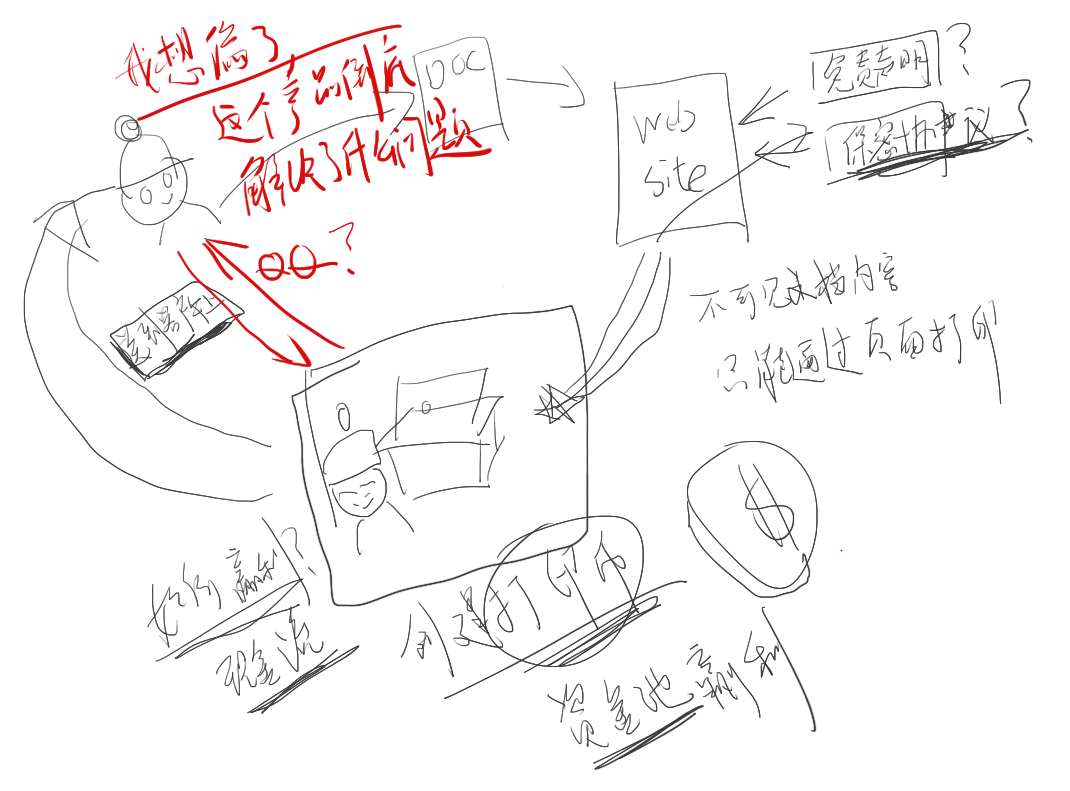 我想偏了
这个产品倒底
解决了什么问题
DOC
Web
site
免责声明?
保密协议?
QQ?
不可见文档内容
只能通过页面打印
$
如何赢利?
现金流
今强打印店
资金池赢利